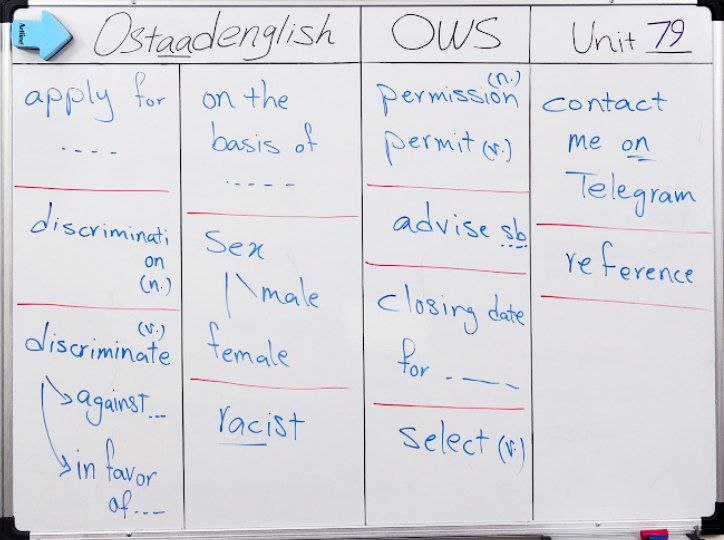 Ostaadenglish
OWS
Unit 79
apply for
....
discriminati
on
(n.)
(v.)
discriminate
against...
in favor
of...
on the
basis of
.....
sex
male
female
racist
(n.)
permission
permit (v.)
advise sb
closing date
for ....
select (v.)
contact
me on
Telegram
reference